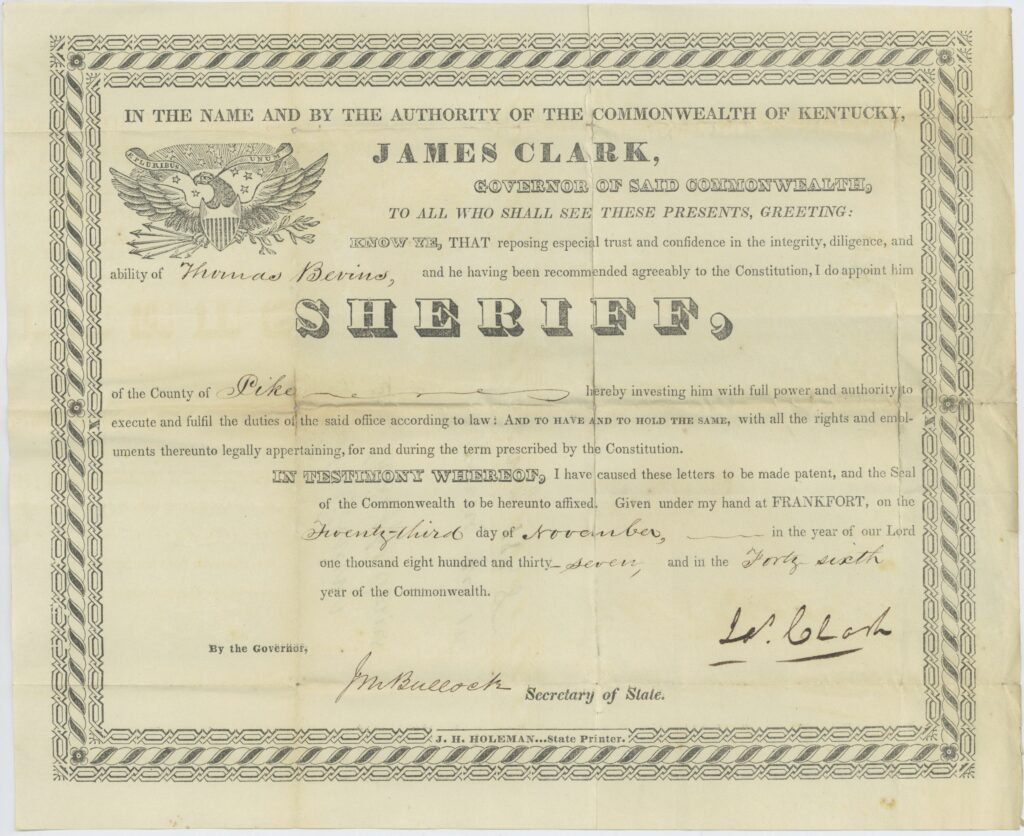 IN THE NAME AND BY THE AUTHORITY OF THE COMMONWEALTH OF KENTUCKY,
E PLURIBUS UNUM
JAMES CLARK,
GOVERNOR OF SAID COMMONWEALTH,
TO ALL WHO SHALL SEE THESE PRESENTS, GREETING:
KNOW YE, THAT reposing especial trust and confidence in the integrity, diligence, and
ability of Thomas Bevins, and he having been recommended agreeably to the Constitution, I do appoint him
SHERIFF,
of the County of Pike hereby investing him with full power and authority to
execute and fulfil the duties of the said office according to law: AND TO HAVE AND TO HOLD THE SAME, with all the rights and emol-
uments thereunto legally appertaining, for and during the term prescribed by the Constitution.
IN TESTIMONY WHEREOF, I have caused these letters to be made patent, and the Seal
of the Commonwealth to be hereunto affixed. Given under my hand at FRANKFORT, on the
Twenty-third day of November, in the year of our Lord
one thousand eight hundred and thirty-seven, and in the Forty sixth
year of the Commonwealth.
Js. Clark
By the Governor,
J M Bullock Secretary of State.
J. H. HOLEMAN...State Printer.